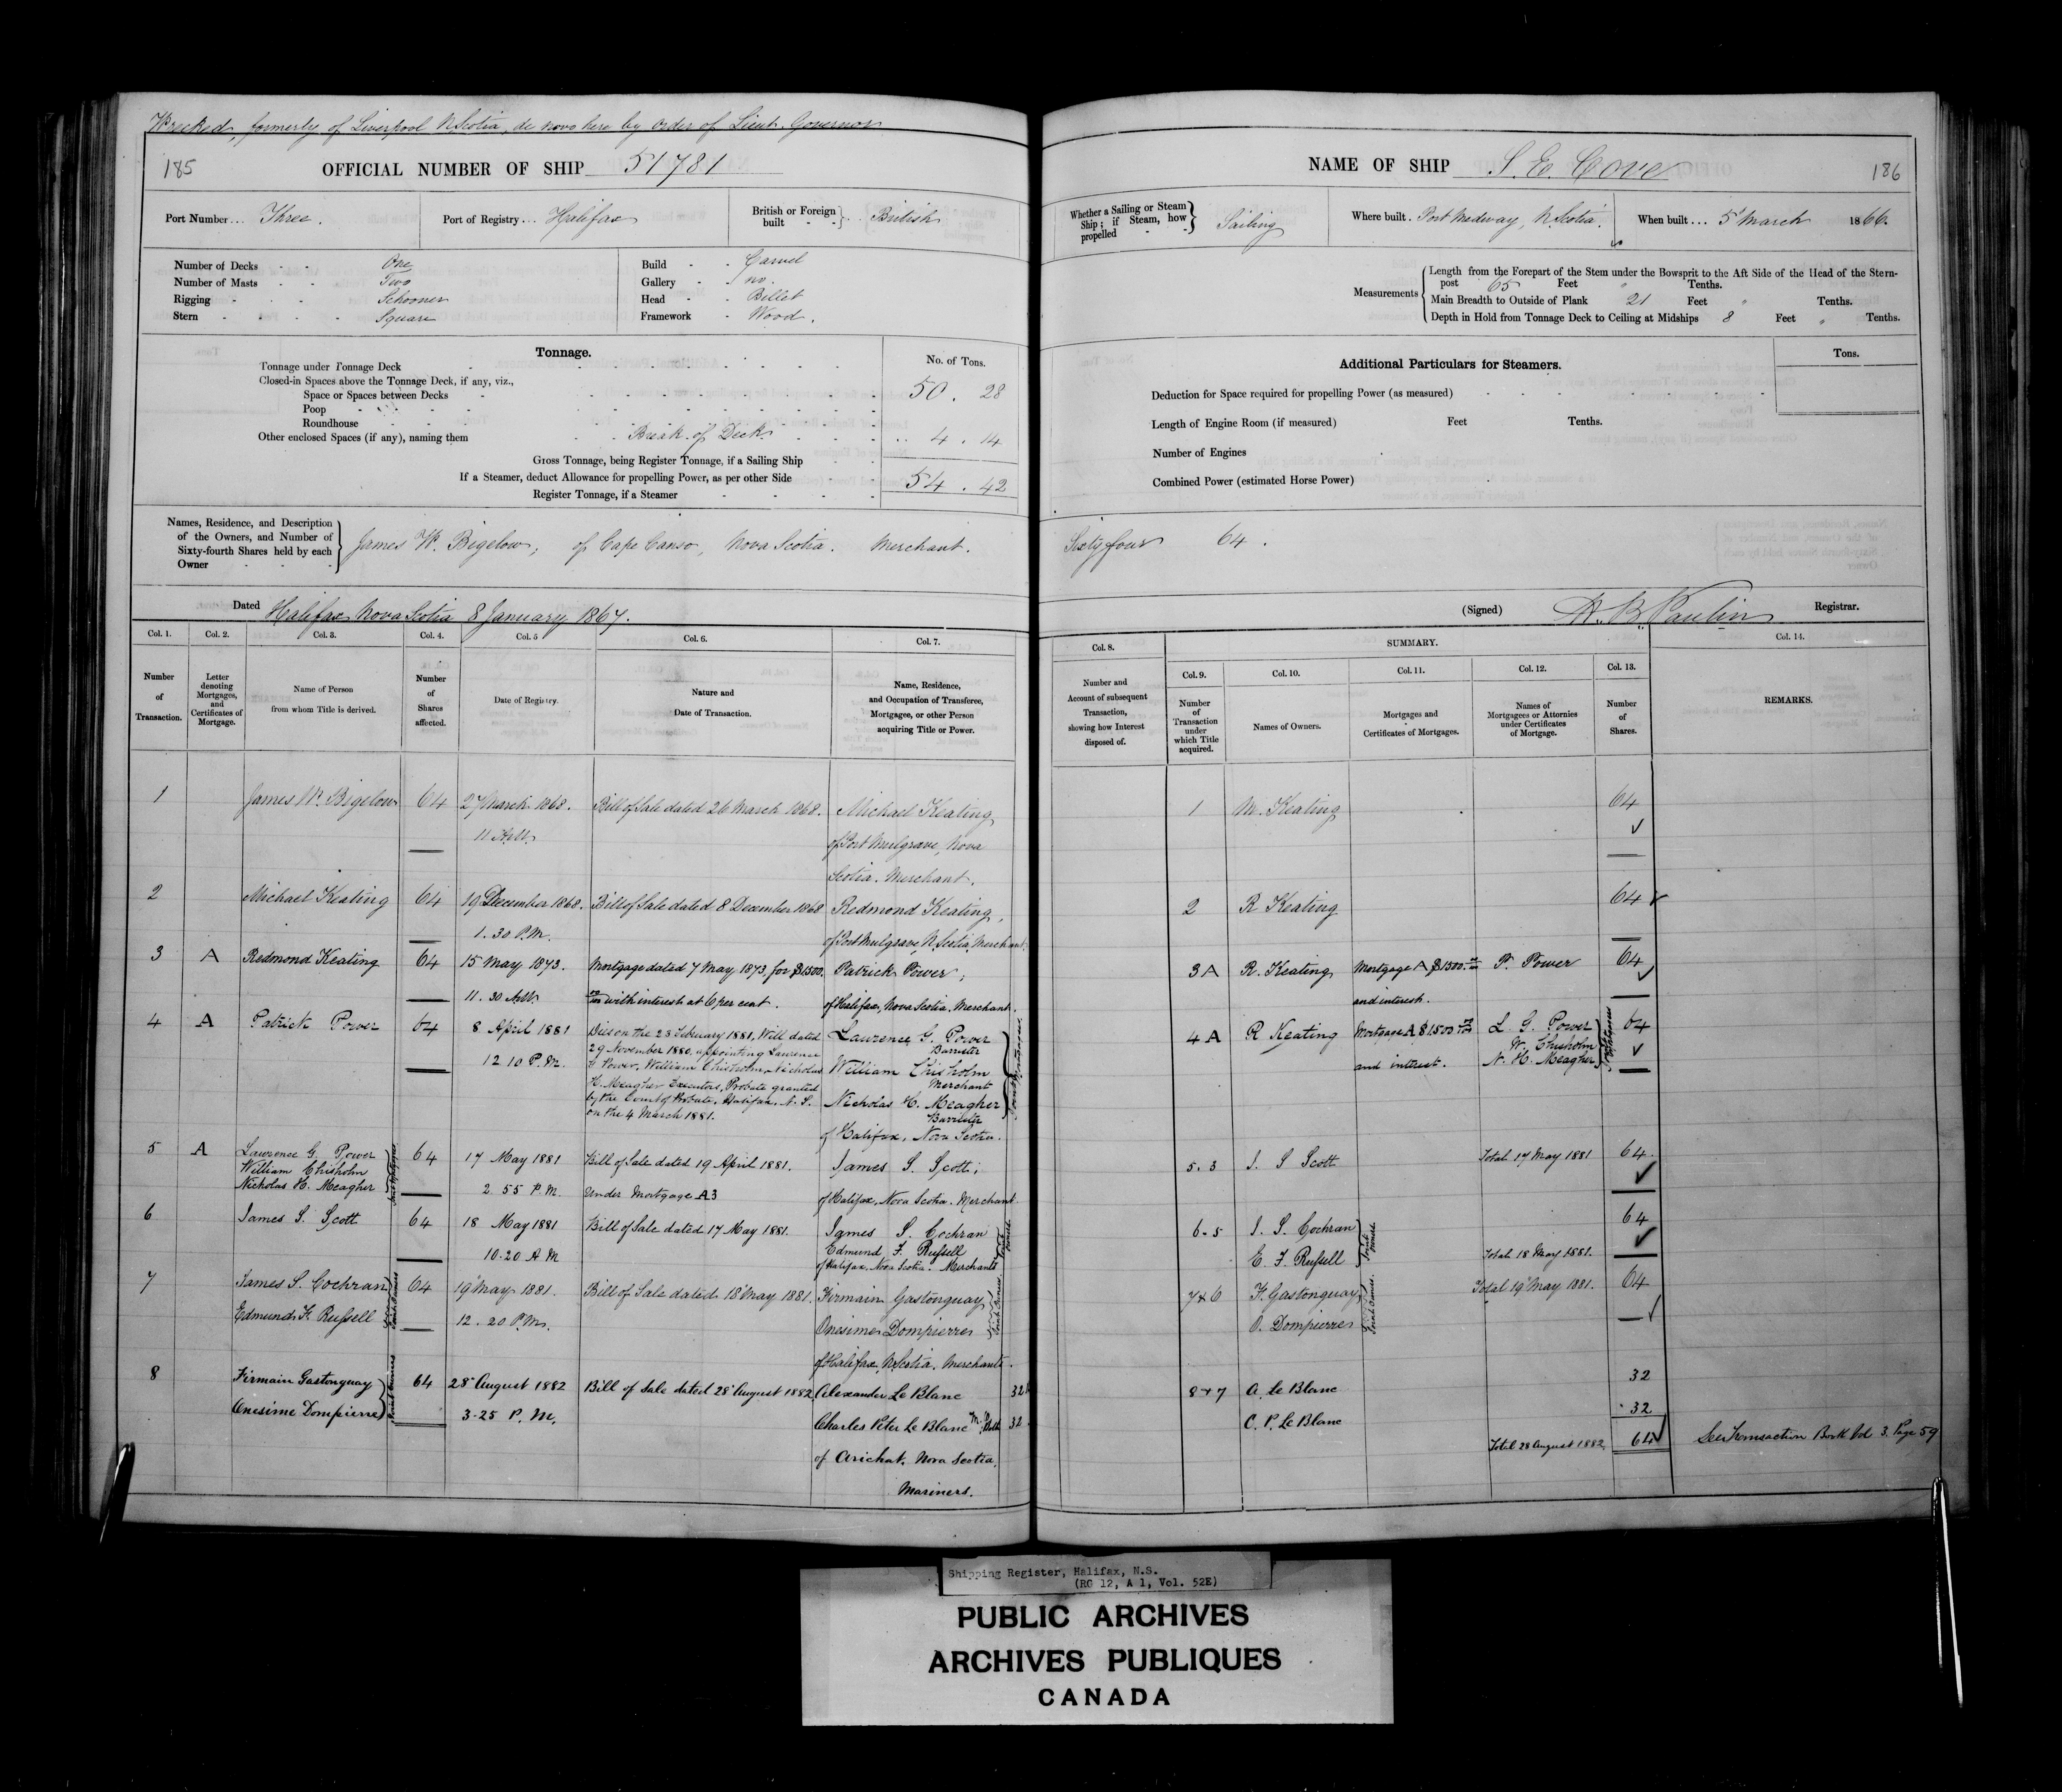 Wrecked, formerly of Liverpool N Scotia, de novo here by order of Lieut. Governor
185 OFFICIAL NUMBER OF SHIP 51781
Port Number... Three. Port of Registry... Halifax British or Foreign built British
Number of Decks One
Number of Masts Two
Rigging Schooner
Stern Square
Build Carvel
Gallery no.
Head Billet
Framework Wood.
Tonnage. No. of Tons.
Tonnage under Tonnage Deck 50. 28
Closed-in Spaces above the Tonnage Deck, if any, viz.,
Space or Spaces between Decks
Poop
Roundhouse
Other enclosed Spaces (if any), naming them Break of Deck 4. 14
Gross Tonnage, being Register Tonnage, if a Sailing Ship 54. 42
If a Steamer, deduct Allowance for propelling Power, as per other Side
Register Tonnage, if a Steamer
Names, Residence, and Description
of the Owners, and Number of
Sixty-fourth Shares held by each
Owner
James W. Bigelow, of Cape Canso, Nova Scotia. Merchant.
Dated Halifax Nova Scotia 8 January 1867.
Col. 1. Col. 2. Col. 3. Col. 4. Col. 5 Col. 6. Col. 7.
Number of Transaction.
Letter denoting Mortgages, and Certificates of Mortgage.
Name of Person from whom Title is derived.
Number of Shares affected.
Date of Registry.
Nature and Date of Transaction.
Name, Residence, and Occupation of Transferee, Mortgagee, or other Person acquiring Title or Power.
1 James W. Bigelow 64 27 March 1868. Bill of Sale dated 26 March 1868. Michael Keating
11 A.M. of Port Mulgrave, Nova
Scotia. Merchant.
2 Michael Keating 64 19 December 1868. Bill of Sale dated 8 December 1868 Redmond Keating,
1.30 P.M. of Port Mulgrave, N. Scotia, Merchant.
3 A Redmond Keating 64 15 May 1873. Mortgage dated 7 May 1873, for $1500. Patrick Power,
11.30 A.M. with interest at 6 per cent. of Halifax, Nova Scotia, Merchant.
4 A Patrick Power 64 8 April 1881 Dies on the 23 February 1881, Will dated Lawrence G. Power
29 November 1880, appointing Lawrence Barrister
12 10 P.M. G Power, William Chisholm, Nicholas William Chisholm
H. Meagher Executors, Probate granted Merchant
by the Court of Probate, Halifax, N. S. Nicholas H. Meagher
on the 4 March 1881. Barrister
of Halifax, Nova Scotia.
Joint Mortgagees
5 A Lawrence G. Power 64 17 May 1881 Bill of Sale dated 19 April 1881. James S. Scott,
William Chisholm
Nicholas H. Meagher 2 55 P.M. Under Mortgage A3 of Halifax, Nova Scotia. Merchant
Joint Mortgagees
6 James S. Scott 64 18 May 1881 Bill of Sale dated 17 May 1881. James S. Cochran
10.20 A M Edmund F. Russell
of Halifax, Nova Scotia. Merchants
Joint Owners
7 James S. Cochran 64 19 May 1881. Bill of Sale dated 18 May 1881. Firmain Gastonguay
Edmund F. Russell 12.20 P.M. Onesime Dompierre
Joint Owners
of Halifax, N. Scotia. Merchants.
8 Firmain Gastonguay 64 28 August 1882 Bill of Sale dated 28 August 1882. Alexander Le Blanc 32
Onesime Dompierre 3.25 P. M. Charles Peter Le Blanc 32
Joint Owners
of Arichat, Nova Scotia,
Mariners.
NAME OF SHIP S. E. Cove 186
Whether a Sailing or Steam Ship; if Steam, how propelled Sailing
Where built. Port Medway, N. Scotia. When built... 5 March 1866.
Measurements
Length from the Forepart of the Stem under the Bowsprit to the Aft Side of the Head of the Stern-
post 65 Feet " Tenths.
Main Breadth to Outside of Plank 21 Feet " Tenths.
Depth in Hold from Tonnage Deck to Ceiling at Midships 8 Feet " Tenths.
Additional Particulars for Steamers. Tons.
Deduction for Space required for propelling Power (as measured)
Length of Engine Room (if measured) Feet Tenths.
Number of Engines
Combined Power (estimated Horse Power)
Sixty four 64.
(Signed) H. B. Paulin Registrar.
Col. 8. SUMMARY. Col. 14.
Col. 9. Col. 10. Col. 11. Col. 12. Col. 13.
Number and Account of subsequent Transaction, showing how Interest disposed of.
Number of Transaction under which Title acquired.
Names of Owners.
Mortgages and Certificates of Mortgages.
Names of Mortgagees or Attornies under Certificates of Mortgage.
Number of Shares.
REMARKS.
1 M. Keating 64
2 R Keating 64
3 A R. Keating Mortgage A $1500. P. Power 64
and interest.
4 A R Keating Mortgage A $1500 L. G. Power 64
W. Chisholm
and interest. N. H. Meagher
5.3 J. S Scott Total 17 May 1881 64.
6.5 J. S. Cochran 64
E. F. Russell Total 18 May 1881.
Joint Owners
7 & 6 F. Gastonguay Total 19 May 1881. 64
O. Dompierre
Joint Owners
8 & 7 A. Le Blanc 32
C. P. Le Blanc 32
Total 28 August 1882 64 See Transaction Book Vol 3. Page 59
Shipping Register, Halifax, N.S.
(RG 12, A 1, Vol. 52E)
PUBLIC ARCHIVES
ARCHIVES PUBLIQUES
CANADA